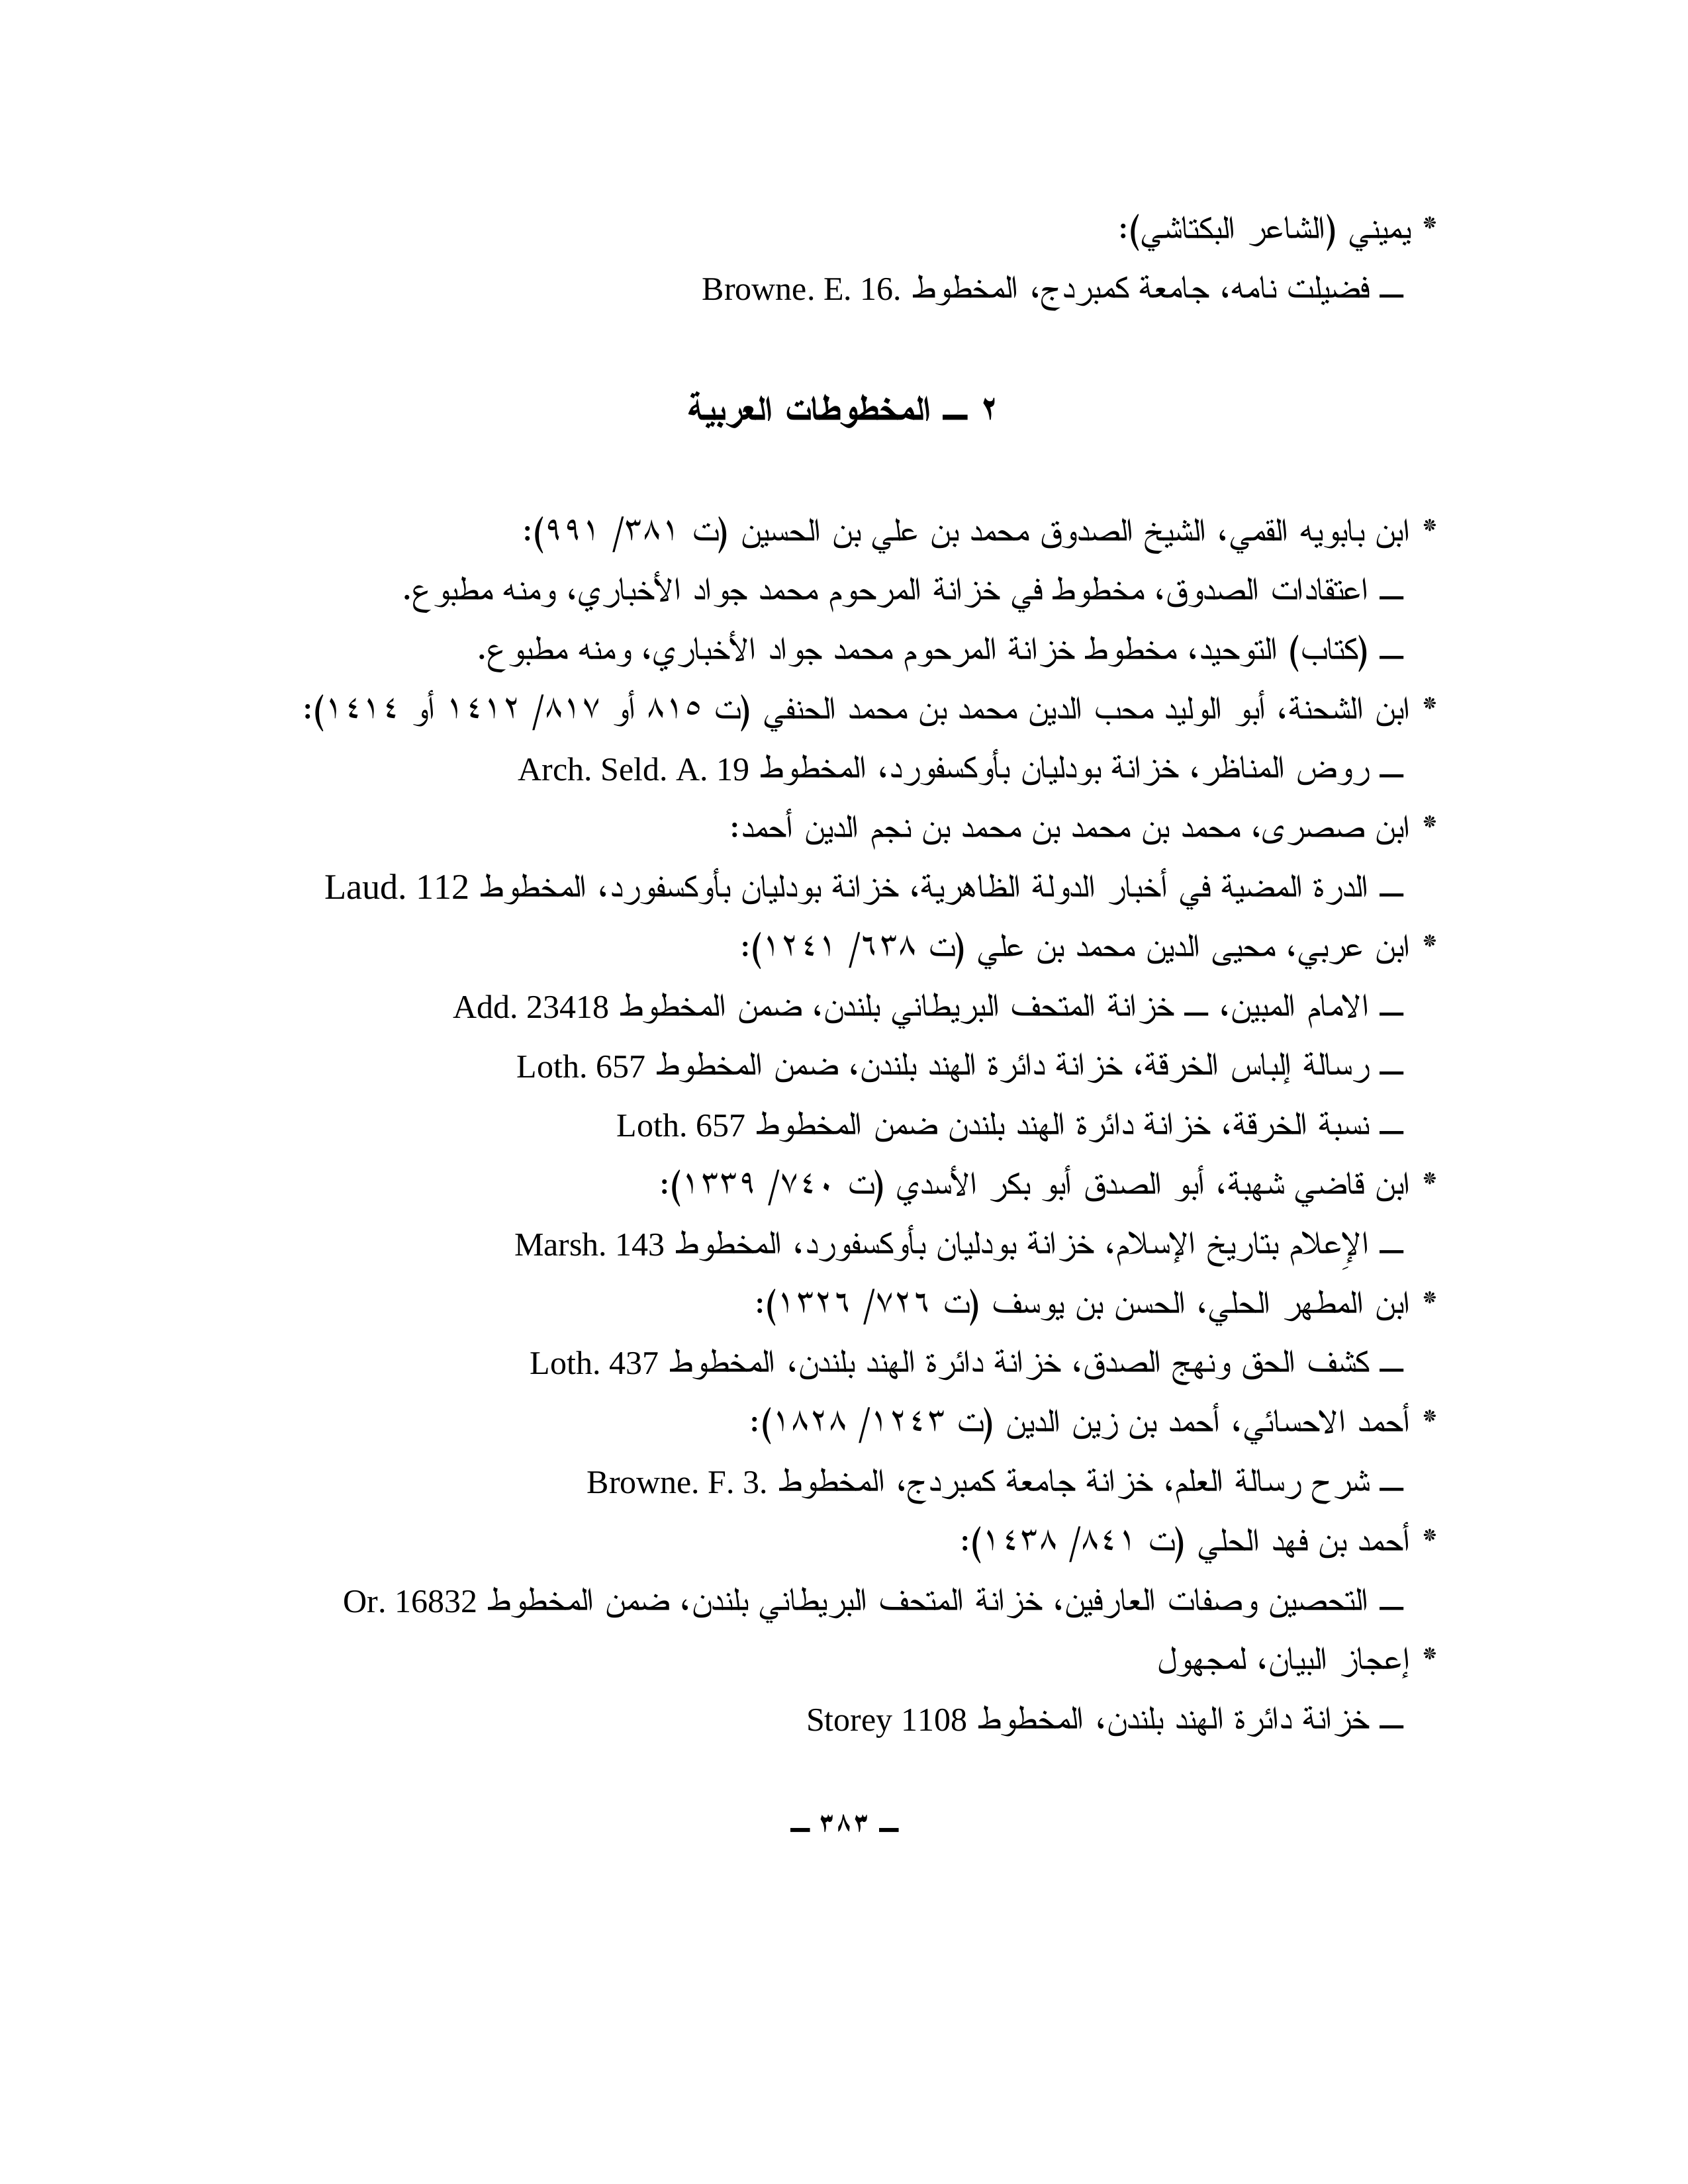 * يميني (الشاعر البكتاشي):
ــ فضيلت نامه، جامعة كمبردج، المخطوط Browne. E. 16.
٢ ــ المخطوطات العربية
* ابن بابويه القمي، الشيخ الصدوق محمد بن علي بن الحسين (ت ٣٨١/ ٩٩١):
ــ اعتقادات الصدوق، مخطوط في خزانة المرحوم محمد جواد الأخباري، ومنه مطبوع.
ــ (كتاب) التوحيد، مخطوط خزانة المرحوم محمد جواد الأخباري، ومنه مطبوع.
* ابن الشحنة، أبو الوليد محب الدين محمد بن محمد الحنفي (ت ٨١٥ أو ٨١٧/ ١٤١٢ أو ١٤١٤):
ــ روض المناظر، خزانة بودليان بأوكسفورد، المخطوط Arch. Seld. A. 19
* ابن صصرى، محمد بن محمد بن محمد بن نجم الدين أحمد:
ــ الدرة المضية في أخبار الدولة الظاهرية، خزانة بودليان بأوكسفورد، المخطوط Laud. 112
* ابن عربي، محيى الدين محمد بن علي (ت ٦٣٨/ ١٢٤١):
ــ الامام المبين، ــ خزانة المتحف البريطاني بلندن، ضمن المخطوط Add. 23418
ــ رسالة إلباس الخرقة، خزانة دائرة الهند بلندن، ضمن المخطوط Loth. 657
ــ نسبة الخرقة، خزانة دائرة الهند بلندن ضمن المخطوط Loth. 657
* ابن قاضي شهبة، أبو الصدق أبو بكر الأسدي (ت ٧٤٠/ ١٣٣٩):
ــ الإِعلام بتاريخ الإسلام، خزانة بودليان بأوكسفورد، المخطوط Marsh. 143
* ابن المطهر الحلي، الحسن بن يوسف (ت ٧٢٦/ ١٣٢٦):
ــ كشف الحق ونهج الصدق، خزانة دائرة الهند بلندن، المخطوط Loth. 437
* أحمد الاحسائي، أحمد بن زين الدين (ت ١٢٤٣/ ١٨٢٨):
ــ شرح رسالة العلم، خزانة جامعة كمبردج، المخطوط Browne. F. 3.
* أحمد بن فهد الحلي (ت ٨٤١/ ١٤٣٨):
ــ التحصين وصفات العارفين، خزانة المتحف البريطاني بلندن، ضمن المخطوط Or. 16832
* إعجاز البيان، لمجهول
ــ خزانة دائرة الهند بلندن، المخطوط Storey 1108
ــ ٣٨٣ ــ